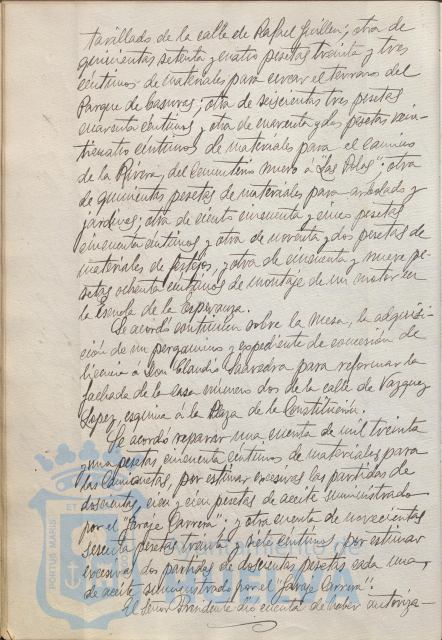 tarillado de la calle de Rafael Guillen; otra de
quinientas setenta y cuatro pesetas treinta y tres
céntimos de materiales para cercar el terreno del
Parque de basuras; otra de seiscientas tres pesetas
cuarenta céntimos y otra de cuarenta y dos pesetas vein-
ticuatro céntimos de materiales para el camino
de la Rivera, del Cementerio nuevo á "Las Polas"; otra
de quinientas pesetas de materiales para arbolado y
jardines; otra de ciento cincuenta y cinco pesetas
cincuenta céntimos y otra de noventa y dos pesetas de
materiales de festejos, y otra de cincuenta y nueve pe-
setas ochenta céntimos de montaje de un motor en
la Escuela de la Esperanza.
Se acordó continúen sobre la mesa, la adquisi-
ción de un pergamino y expediente de concesión de
licencia á Don Claudio Saavedra para reformar la
fachada de la casa número dos de la calle de Vazquez
Lopez, esquina á la Plaza de la Constitución.
Se acordó reparar una cuenta de mil treinta
y una pesetas cincuenta céntimos de materiales para
las camionetas, por estimar excesivas las partidas de
doscientas, cien y cien pesetas de aceite suministrado
por el "Garage Carrera"; y otra cuenta de novecientas
sesenta pesetas treinta y siete céntimos, por estimar
excesivas dos partidas de doscientas pesetas cada una,
de aceite suministrado por el "Garage Carrera".
El Señor Presidente dio cuenta de haber autoriza-
PORTUS MARIS ET
Ayuntamiento de
HUELVA